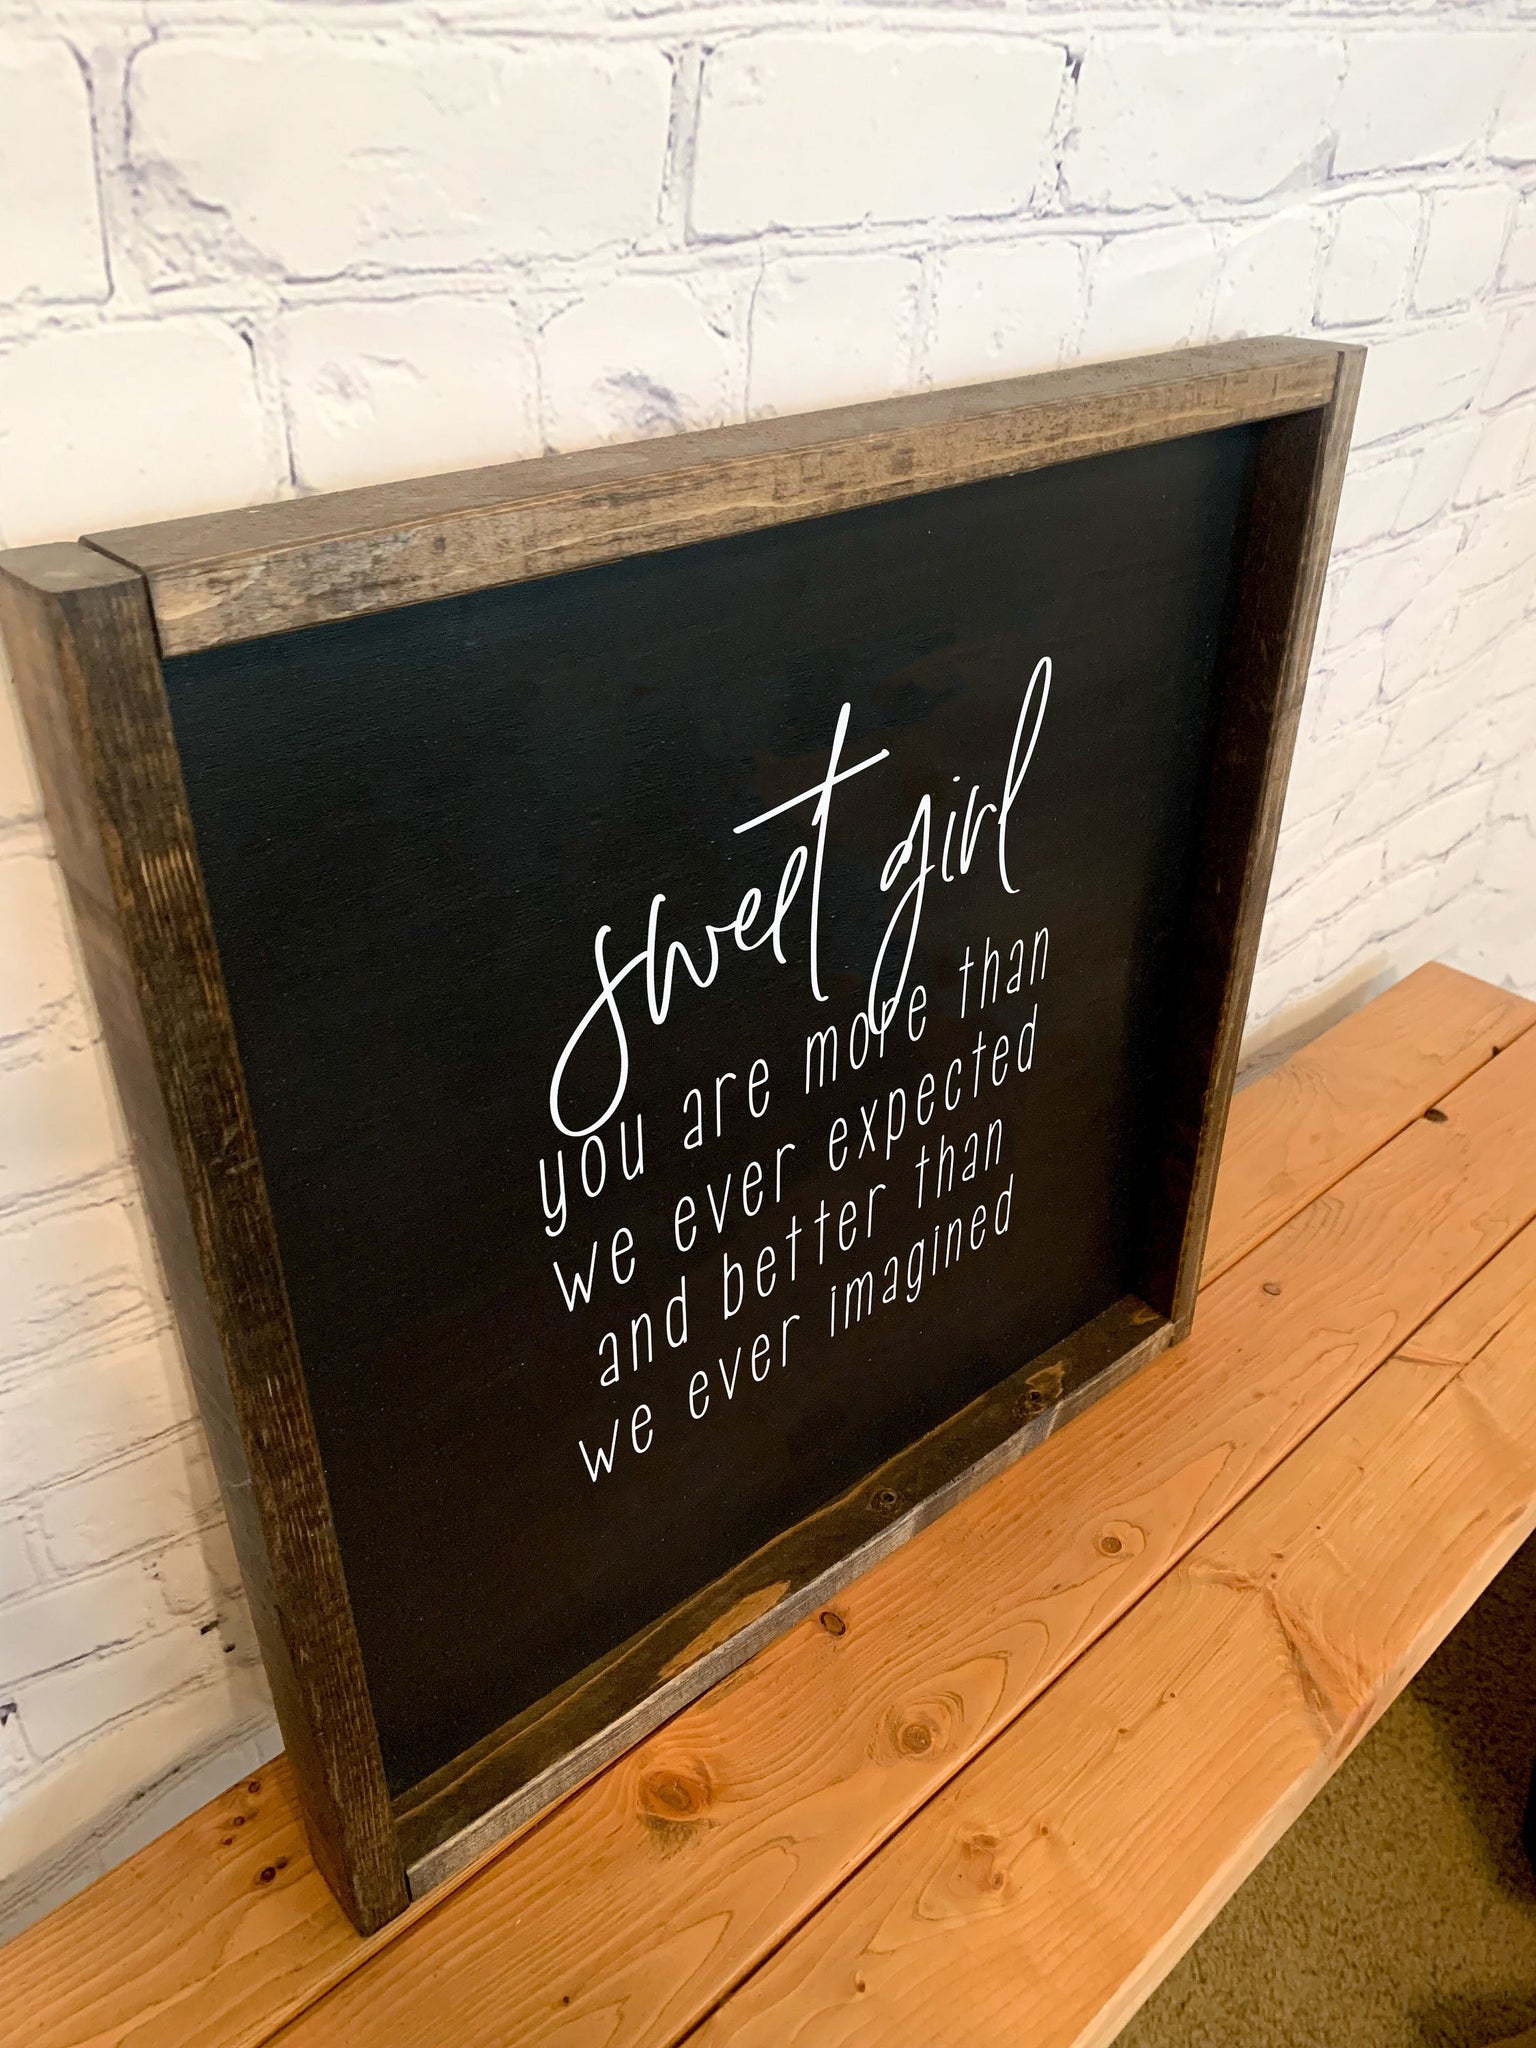 sweet girl
you are more than
we ever expected
and better than
we ever imagined